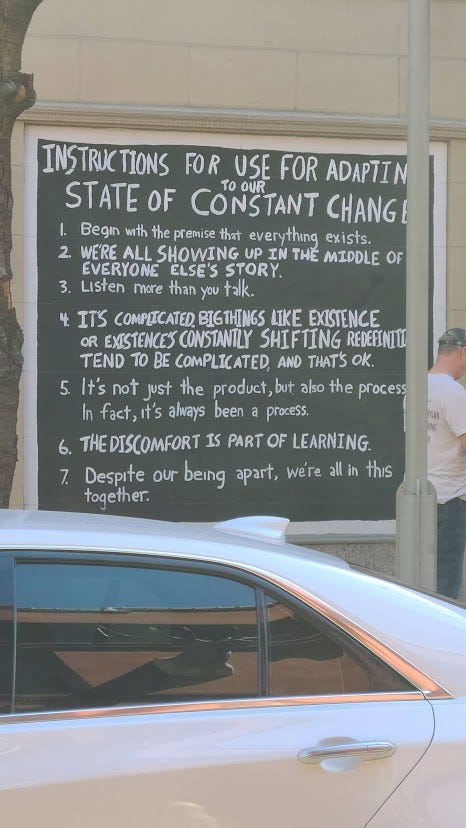 INSTRUCTIONS FOR USE FOR ADAPTIN
TO OUR
STATE OF CONSTANT CHANGE
1. Begin with the premise that everything exists.
2. WE'RE ALL SHOWING UP IN THE MIDDLE OF
EVERYONE ELSE'S STORY.
3. Listen more than you talk.
4. IT'S COMPLICATED. BIG THINGS LIKE EXISTENCE
OR EXISTENCE'S CONSTANTLY SHIFTING REDEFINITI
TEND TO BE COMPLICATED, AND THAT'S OK.
5. It's not just the product, but also the process
In fact, it's always been a process.
6. THE DISCOMFORT IS PART OF LEARNING.
7. Despite our being apart, we're all in this
together.